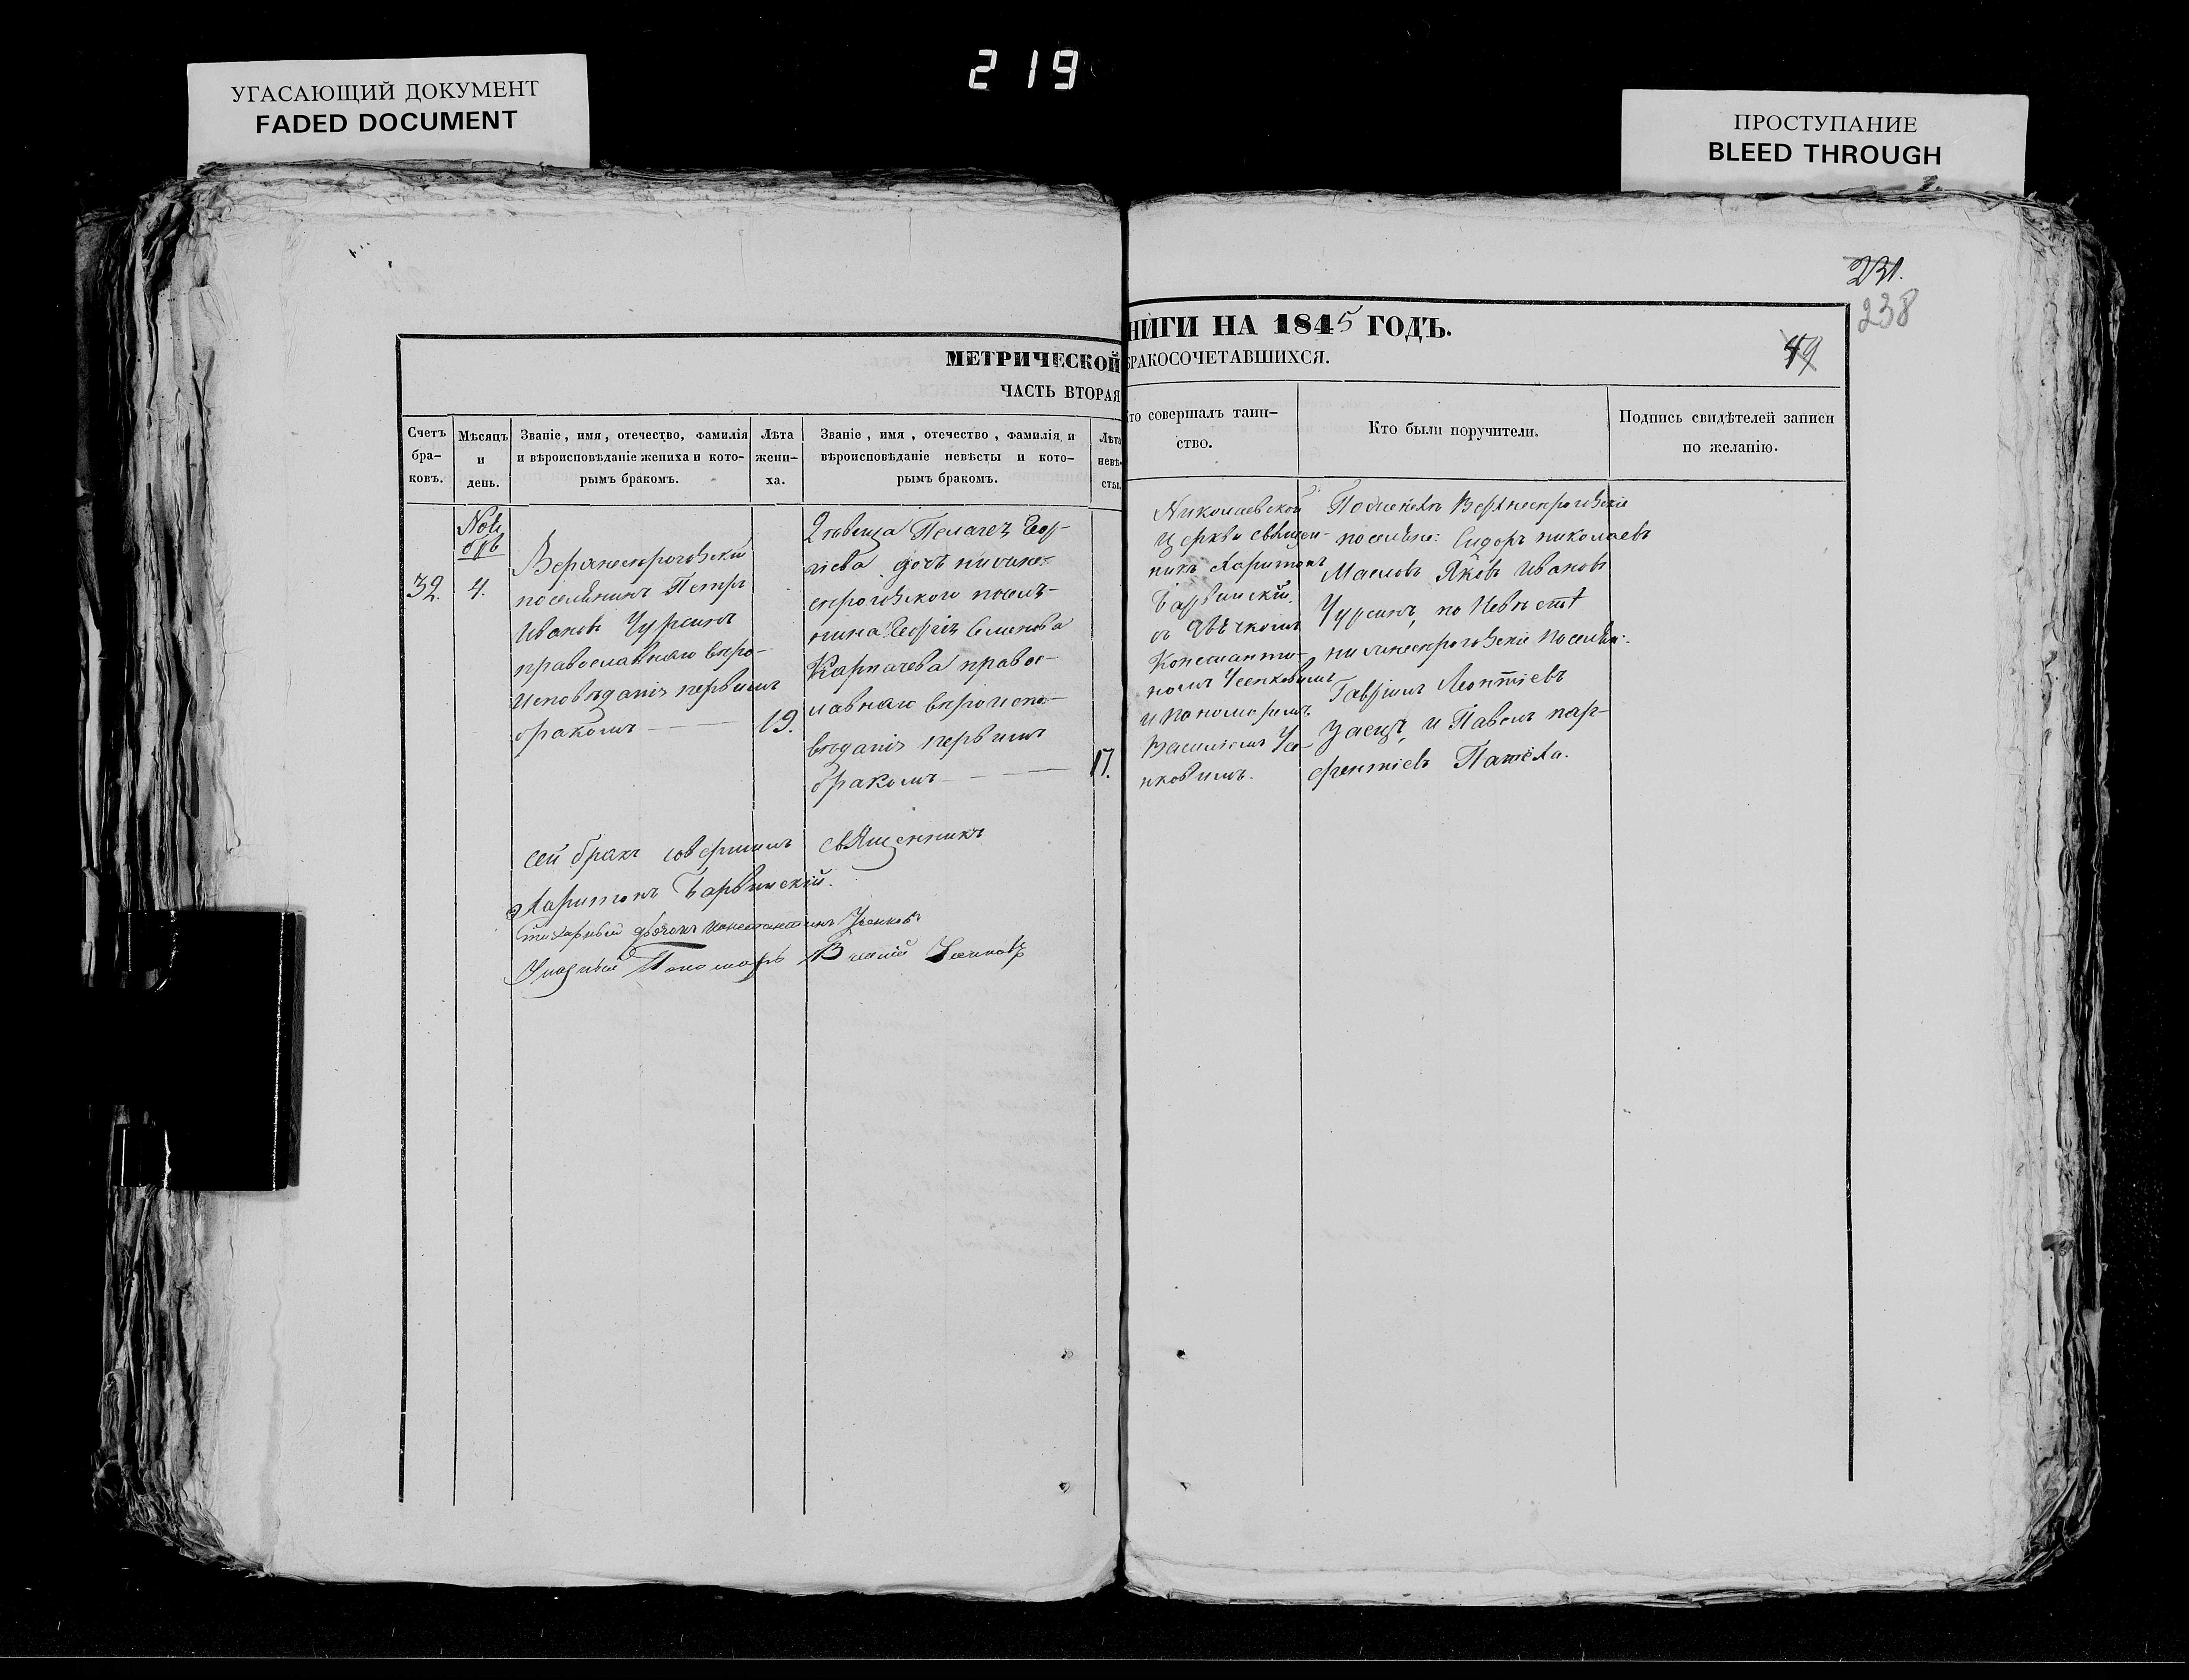 219
УГАСАЮЩИЙ ДОКУМЕНТ
FADED DOCUMENT
ПРОСТУПАНИЕ
BLEED THROUGH
231.
238
49
МЕТРИЧЕСКОЙ
ЧАСТЬ ВТОРАЯ
НИГИ НА 1845 ГОДЪ.
БРАКОСОЧЕТАВШИХСЯ.
Счетъ
бра-
ковъ.
Мѣсяцъ
и
день.
Званіе, имя, отечество, фамилія
и вѣроисповѣданіе жениха и кото-
рымъ бракомъ.
Лѣта
жени-
ха.
Званіе, имя, отечество, фамилія и
вѣроисповѣданіе невѣсты и кото-
рымъ бракомъ.
Лѣта
невѣ-
сты.
то совершалъ таин-
ство.
Кто были поручители.
Подпись свидѣтелей записи
по желанію.
Ноя
брь
32.
4.
Верхнесыроватскій
поселянинъ Петръ
Ивановъ Чурсинъ
православнаго веро-
исповѣданія первымъ
бракомъ
19.
Дѣвица Геор-
гіева дочь нижне-
сыроватскаго посел-
нина Георгія Семенова
Карпачева правос-
лавнаго вероиспо-
вѣданія первымъ
бракомъ
17.
Николаевской
Церкви священ-
никъ Харитонъ
Барвинскій
съ дьячкомъ
Константи-
номъ Усенковымъ
и пономаремъ
Василіемъ Усе-
нковымъ.
По женихѣ Верхнесыроватскіе
поселяне: Сидоръ николаевъ
Масловъ Яковъ Ивановъ
Чурсинъ, по невѣстѣ
нижнесыроватскіе поселян:
Гавріилъ Леонтіевъ
Заецъ, и Павелъ пар-
фентіевъ
сей бракъ совершилъ священникъ
Харитонъ Барвинскій.
дьячокъ Константинъ Усенковъ
Пономарь Василій Усенковъ